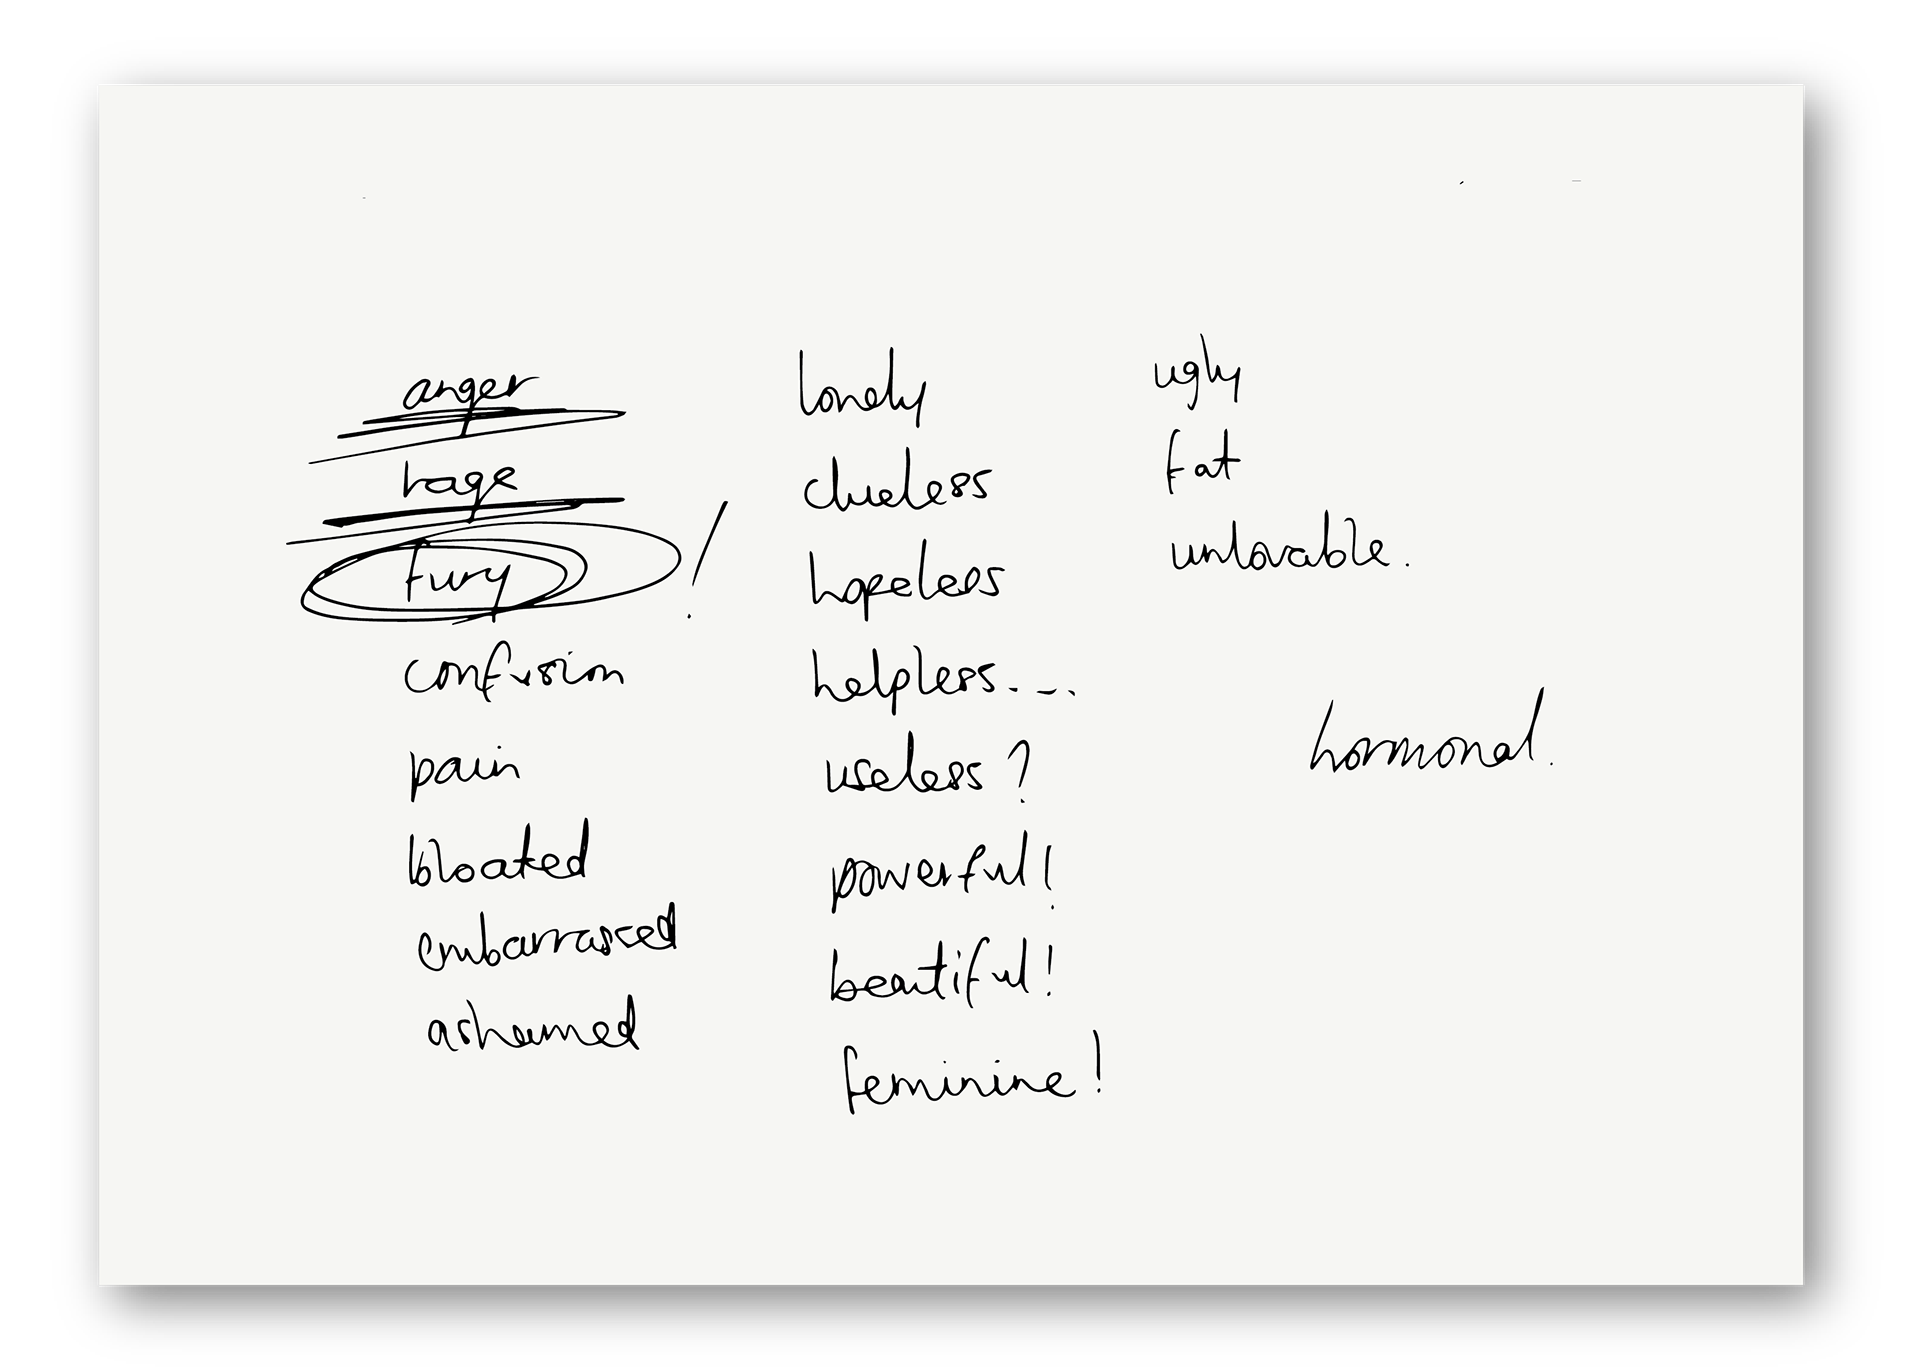 anger
rage
fury !
confusion
pain
bloated
embarrassed
ashamed
lonely
clueless
hopeless
helpless...
useless?
powerful!
beautiful!
feminine!
ugly
fat
unlovable.
hormonal.